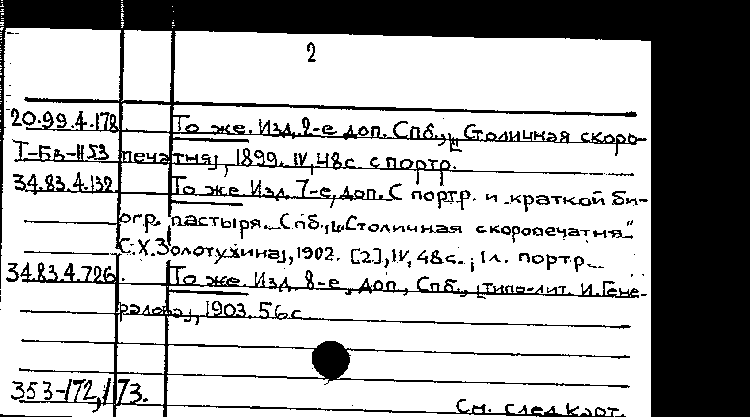 2
20.99.4.178 То же. Изд. 2-е доп. Спб., [[Столичная скоро-
Т-Бв-1153 печатня], 1899. IV, 48с. с портр.
34.83.4.132. То же. Изд. 7-е, доп. С портр. и краткой би-
огр. пастыря. Спб., [„Столичная скоропечатня"
С.Х.Золотухина], 1902. [2], IV, 48с., 1л. портр.
34.83.4.726. То же. Изд. 8-е, доп., Спб., [типо-лит. И. Гене-
ралова], 1903. 56с.
353-172,173.
См. след. карт.